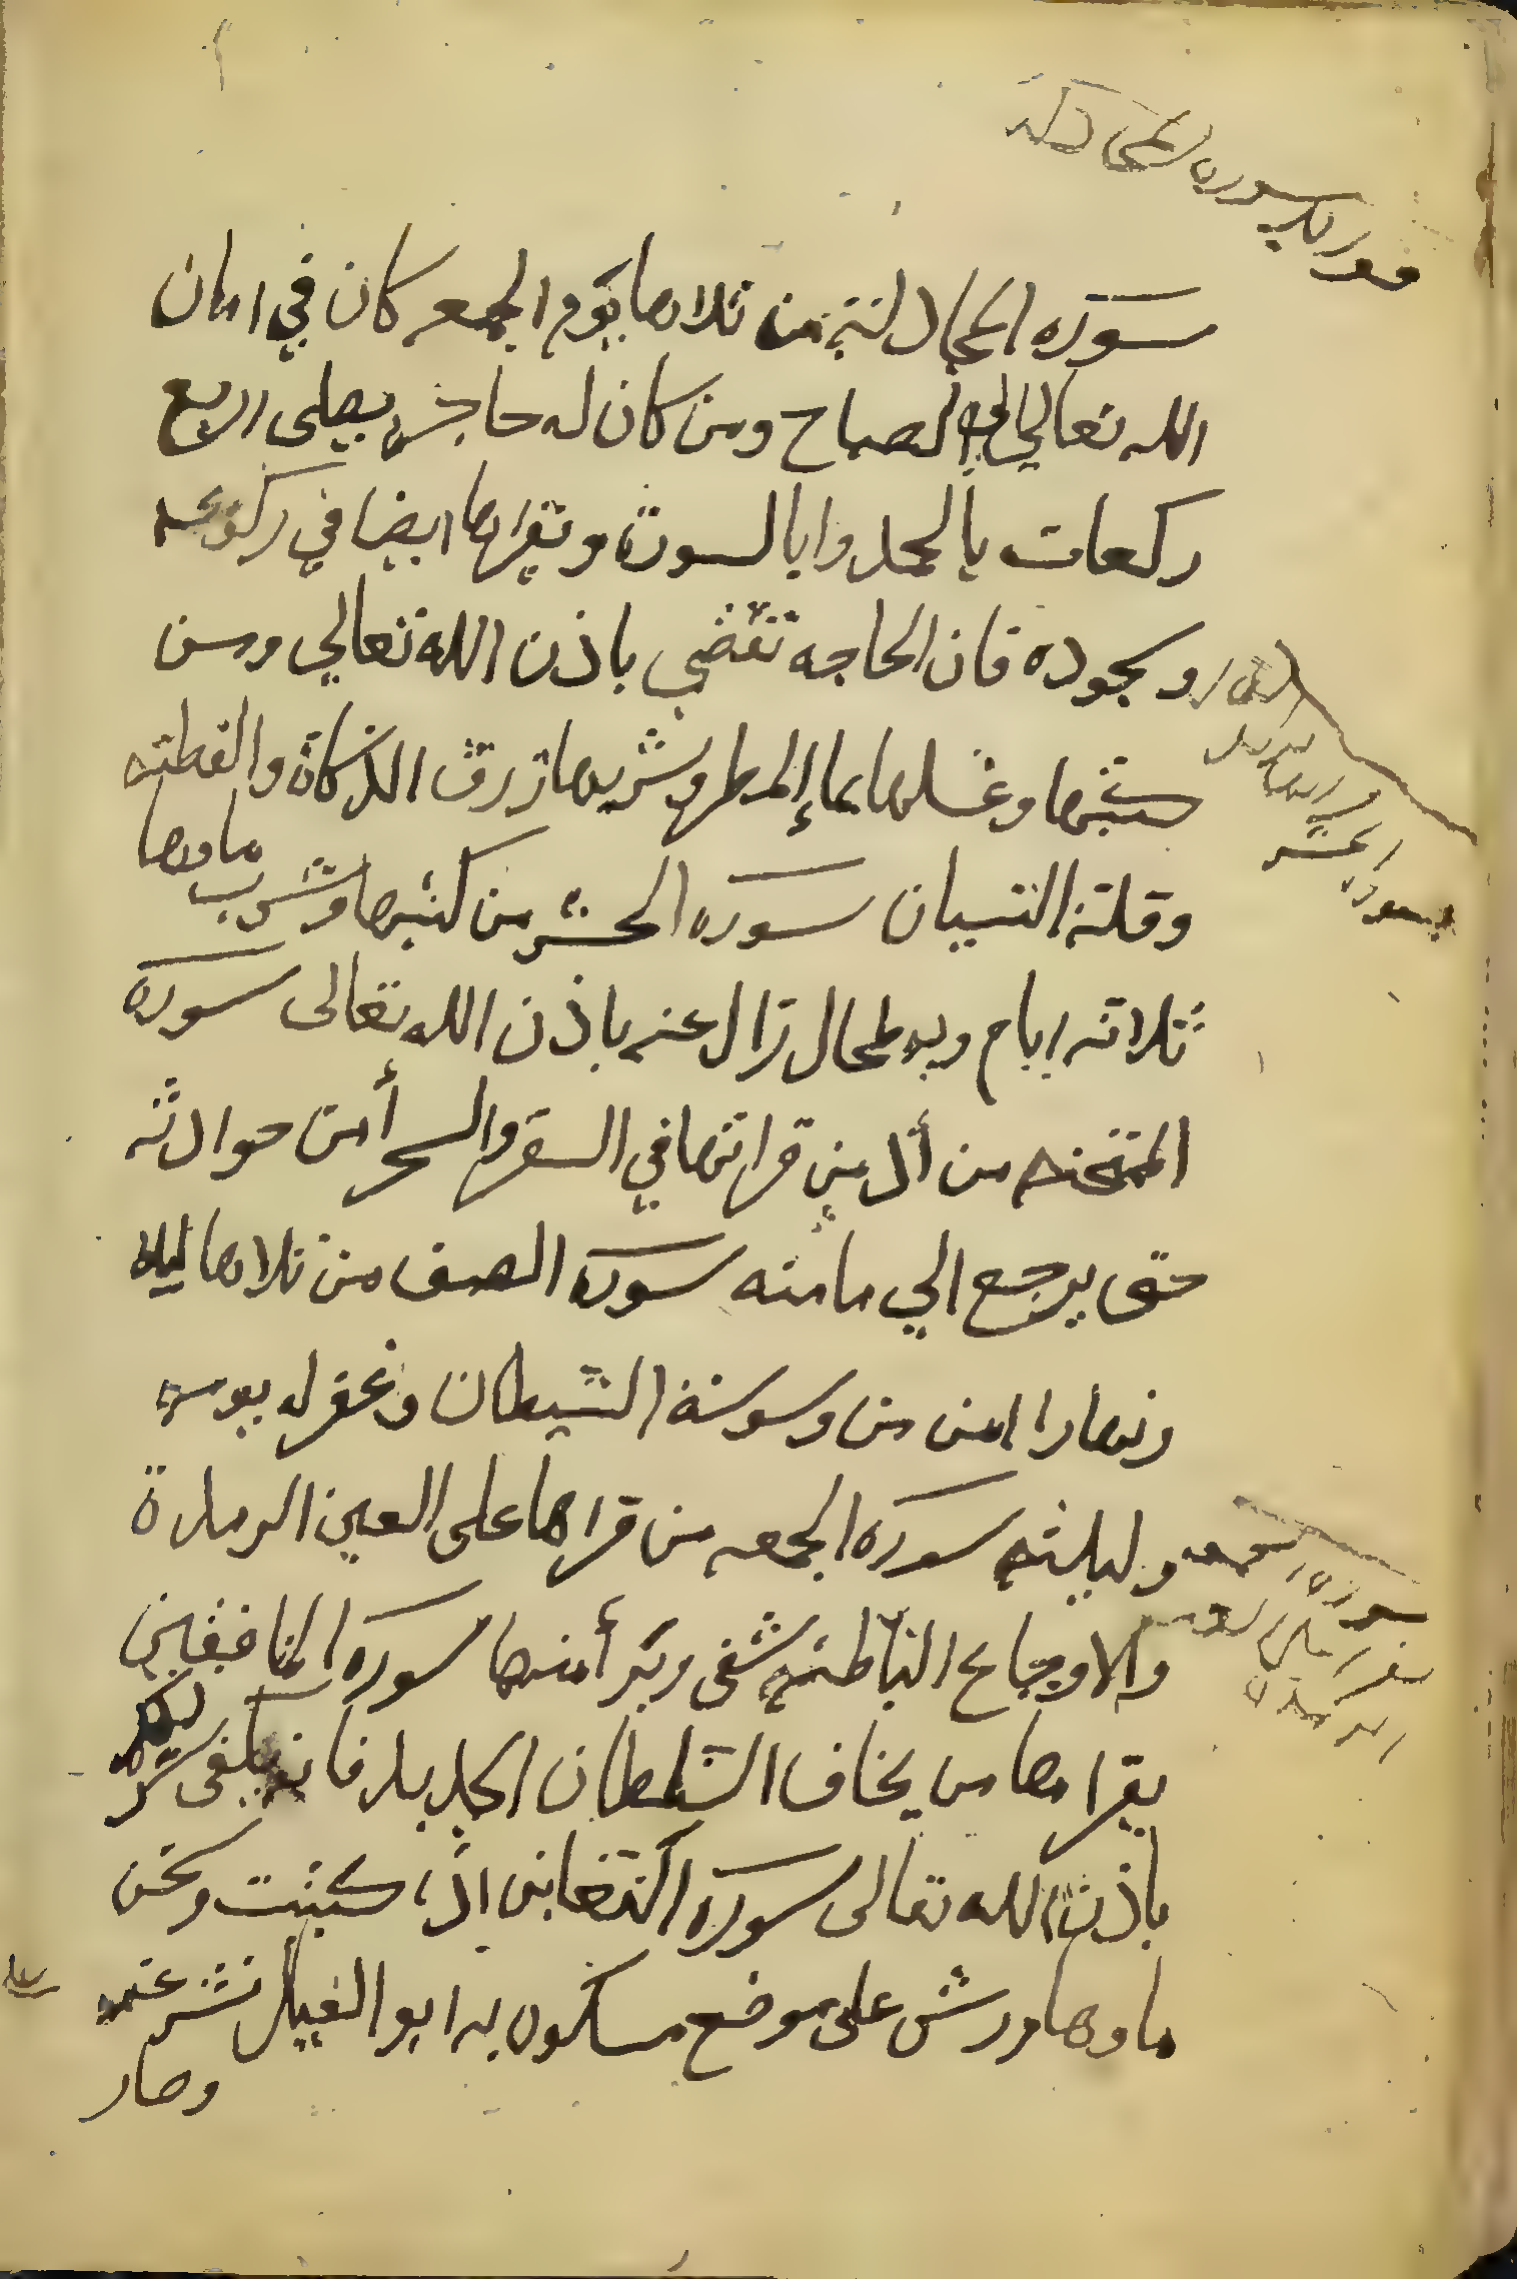 فوايد سورة المجادلة
سورة المجادلتة من تلاها يوم الجمعه كان في امان
الله تعالي الي الصباح ومن كان له حاجة يصلى اربع
ركعات بالحمد وابالسورة وتقراها ايضا في ركوعه
وسجوده فان الحاجه تقضي باذن الله تعالي ومن
كتبها وغسلها بماء المطر وشربها رزق الذكاة والفطنة
وقلة النسيان سورة الحشر من كتبها وشرب ماوها
ثلاثة ايام وبه طحال زال عنه باذن الله تعالى سورة
الممتحنه من أدمن قراتها في السفر والسحر أمن حوادثه
حتى يرجع الي مامنه سورة الصف من تلاها ليلا
ونهارا امن من وسوسة الشيطان وغفر له يومه
وليلته سورة الجمعه من قراها على العين الرمدة
والاوجاع الباطنه شفى وبرأ منها سورة المنافقين
يقراها من يخاف السلطان الجديد فانه يكفى شره
باذن الله تعالى سورة التغابن اذا كتبت ومحى
ماوها ورش على موضع مسكون به ابو الفيل نشر عنه
وصار
سورة الحشر
سورة الجمعه
تقرا على العين
الرمدة